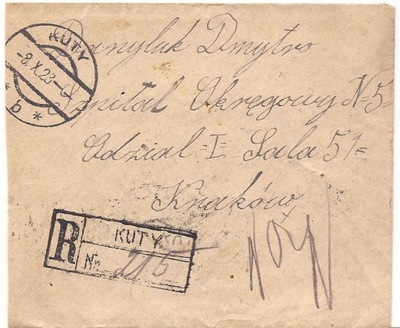 KUTY
-8.X.23-
* b *
Danyluk Dmytro
Szpital Okręgowy N 5=
Odzial-I- Sala 51=
Kraków
R KUTY
Nr. 215